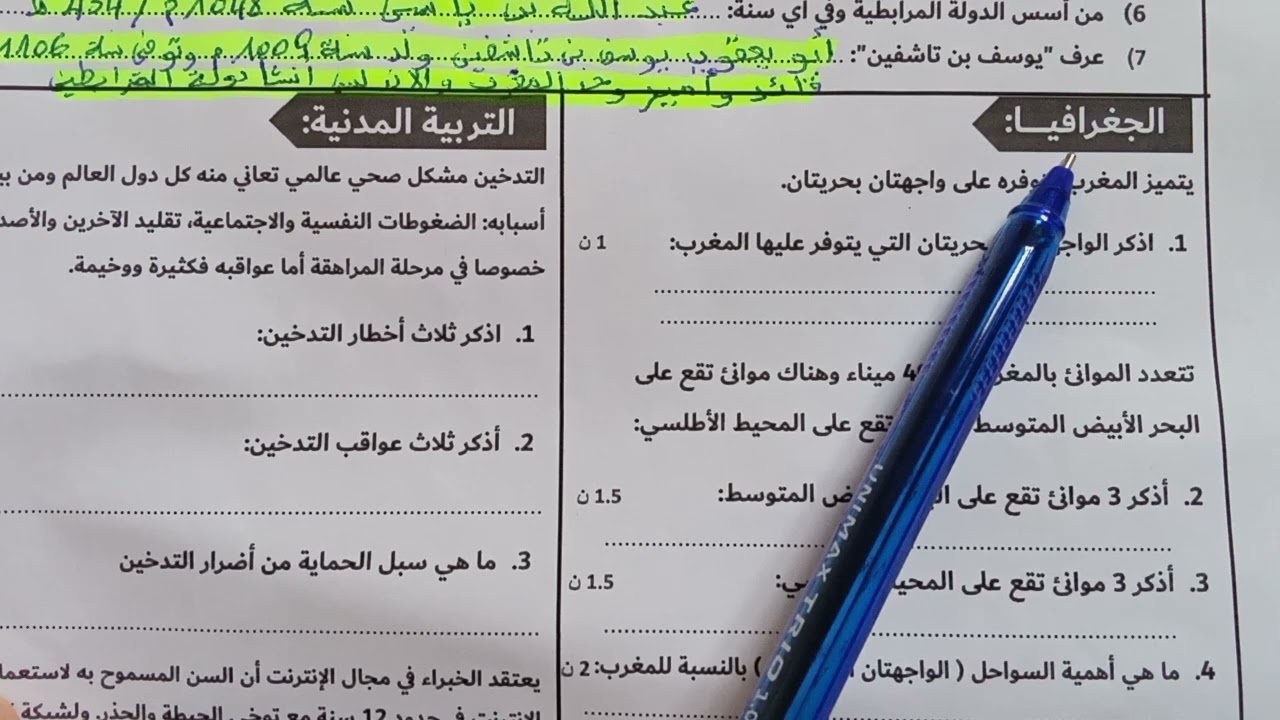 6) من أسس الدولة المرابطية وفي أي سنة:
7) عرف "يوسف بن تاشفين": أبو يعقوب يوسف بن تاشفين ولد سنة 1009م وتوفي سنة 1106
قائد وأمير
الجغرافيــا:
يتميز المغرب على واجهتان بحريتان.
1. اذكر التي يتوفر عليها المغرب: 1 ن
تتعدد الموانئ ميناء وهناك موانئ تقع على
البحر الأبيض المتوسط تقع على المحيط الأطلسي:
2. أذكر 3 موانئ تقع على المتوسط: 1.5 ن
3. أذكر 3 موانئ تقع على 1.5 ن
4. ما هي أهمية السواحل ( الواجهتان ) بالنسبة للمغرب: 2 ن
التربية المدنية:
التدخين مشكل صحي عالمي تعاني منه كل دول العالم ومن
أسبابه: الضغوطات النفسية والاجتماعية، تقليد الآخرين
خصوصا في مرحلة المراهقة أما عواقبه فكثيرة ووخيمة.
1. اذكر ثلاث أخطار التدخين:
2. أذكر ثلاث عواقب التدخين:
3. ما هي سبل الحماية من أضرار التدخين
يعتقد الخبراء في مجال الإنترنت أن السن المسموح به
الإنترنت في حدود 12 سنة مع توخي الحيطة والحذر. ولشبكة
UNIMAX TRIO 1.0